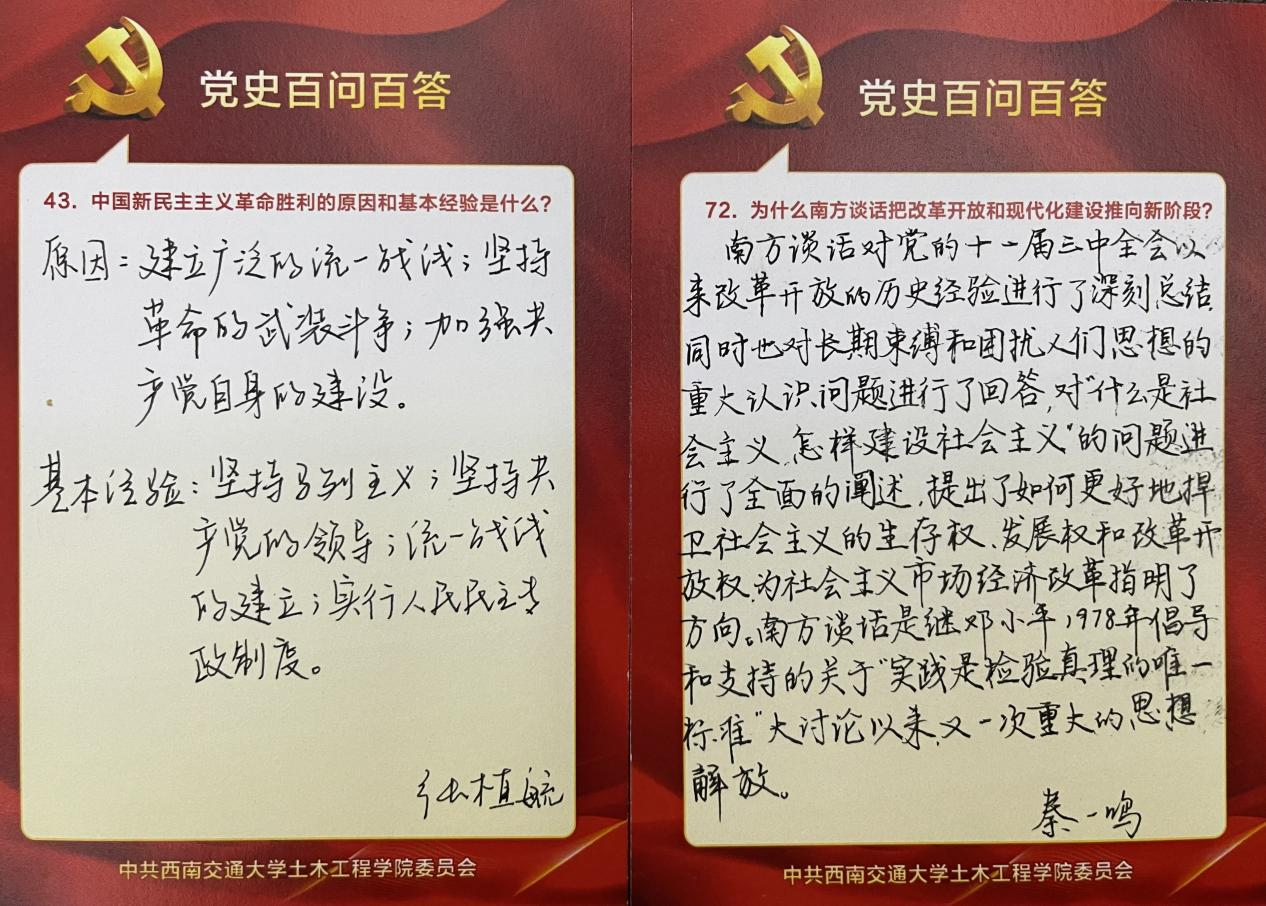 党史百问百答
43. 中国新民主主义革命胜利的原因和基本经验是什么?
原因:建立广泛的统一战线;坚持
革命的武装斗争;加强共
产党自身的建设。
基本经验:坚持马列主义;坚持共
产党的领导;统一战线
的建立;实行人民民主专
政制度。
植毓
中共西南交通大学土木工程学院委员会
党史百问百答
72. 为什么南方谈话把改革开放和现代化建设推向新阶段?
南方谈话对党的十一届三中全会以
来改革开放的历史经验进行了深刻总结
同时也对长期束缚和困扰人们思想的
重大认识问题进行了回答,对“什么是社
会主义、怎样建设社会主义”的问题进
行了全面的阐述,提出了如何更好地捍
卫社会主义的生存权、发展权和改革开
放权,为社会主义市场经济改革指明了
方向。南方谈话是继邓小平1978年倡导
和支持的关于“实践是检验真理的唯一
标准”大讨论以来,又一次重大的思想
解放。
秦一鸣
中共西南交通大学土木工程学院委员会